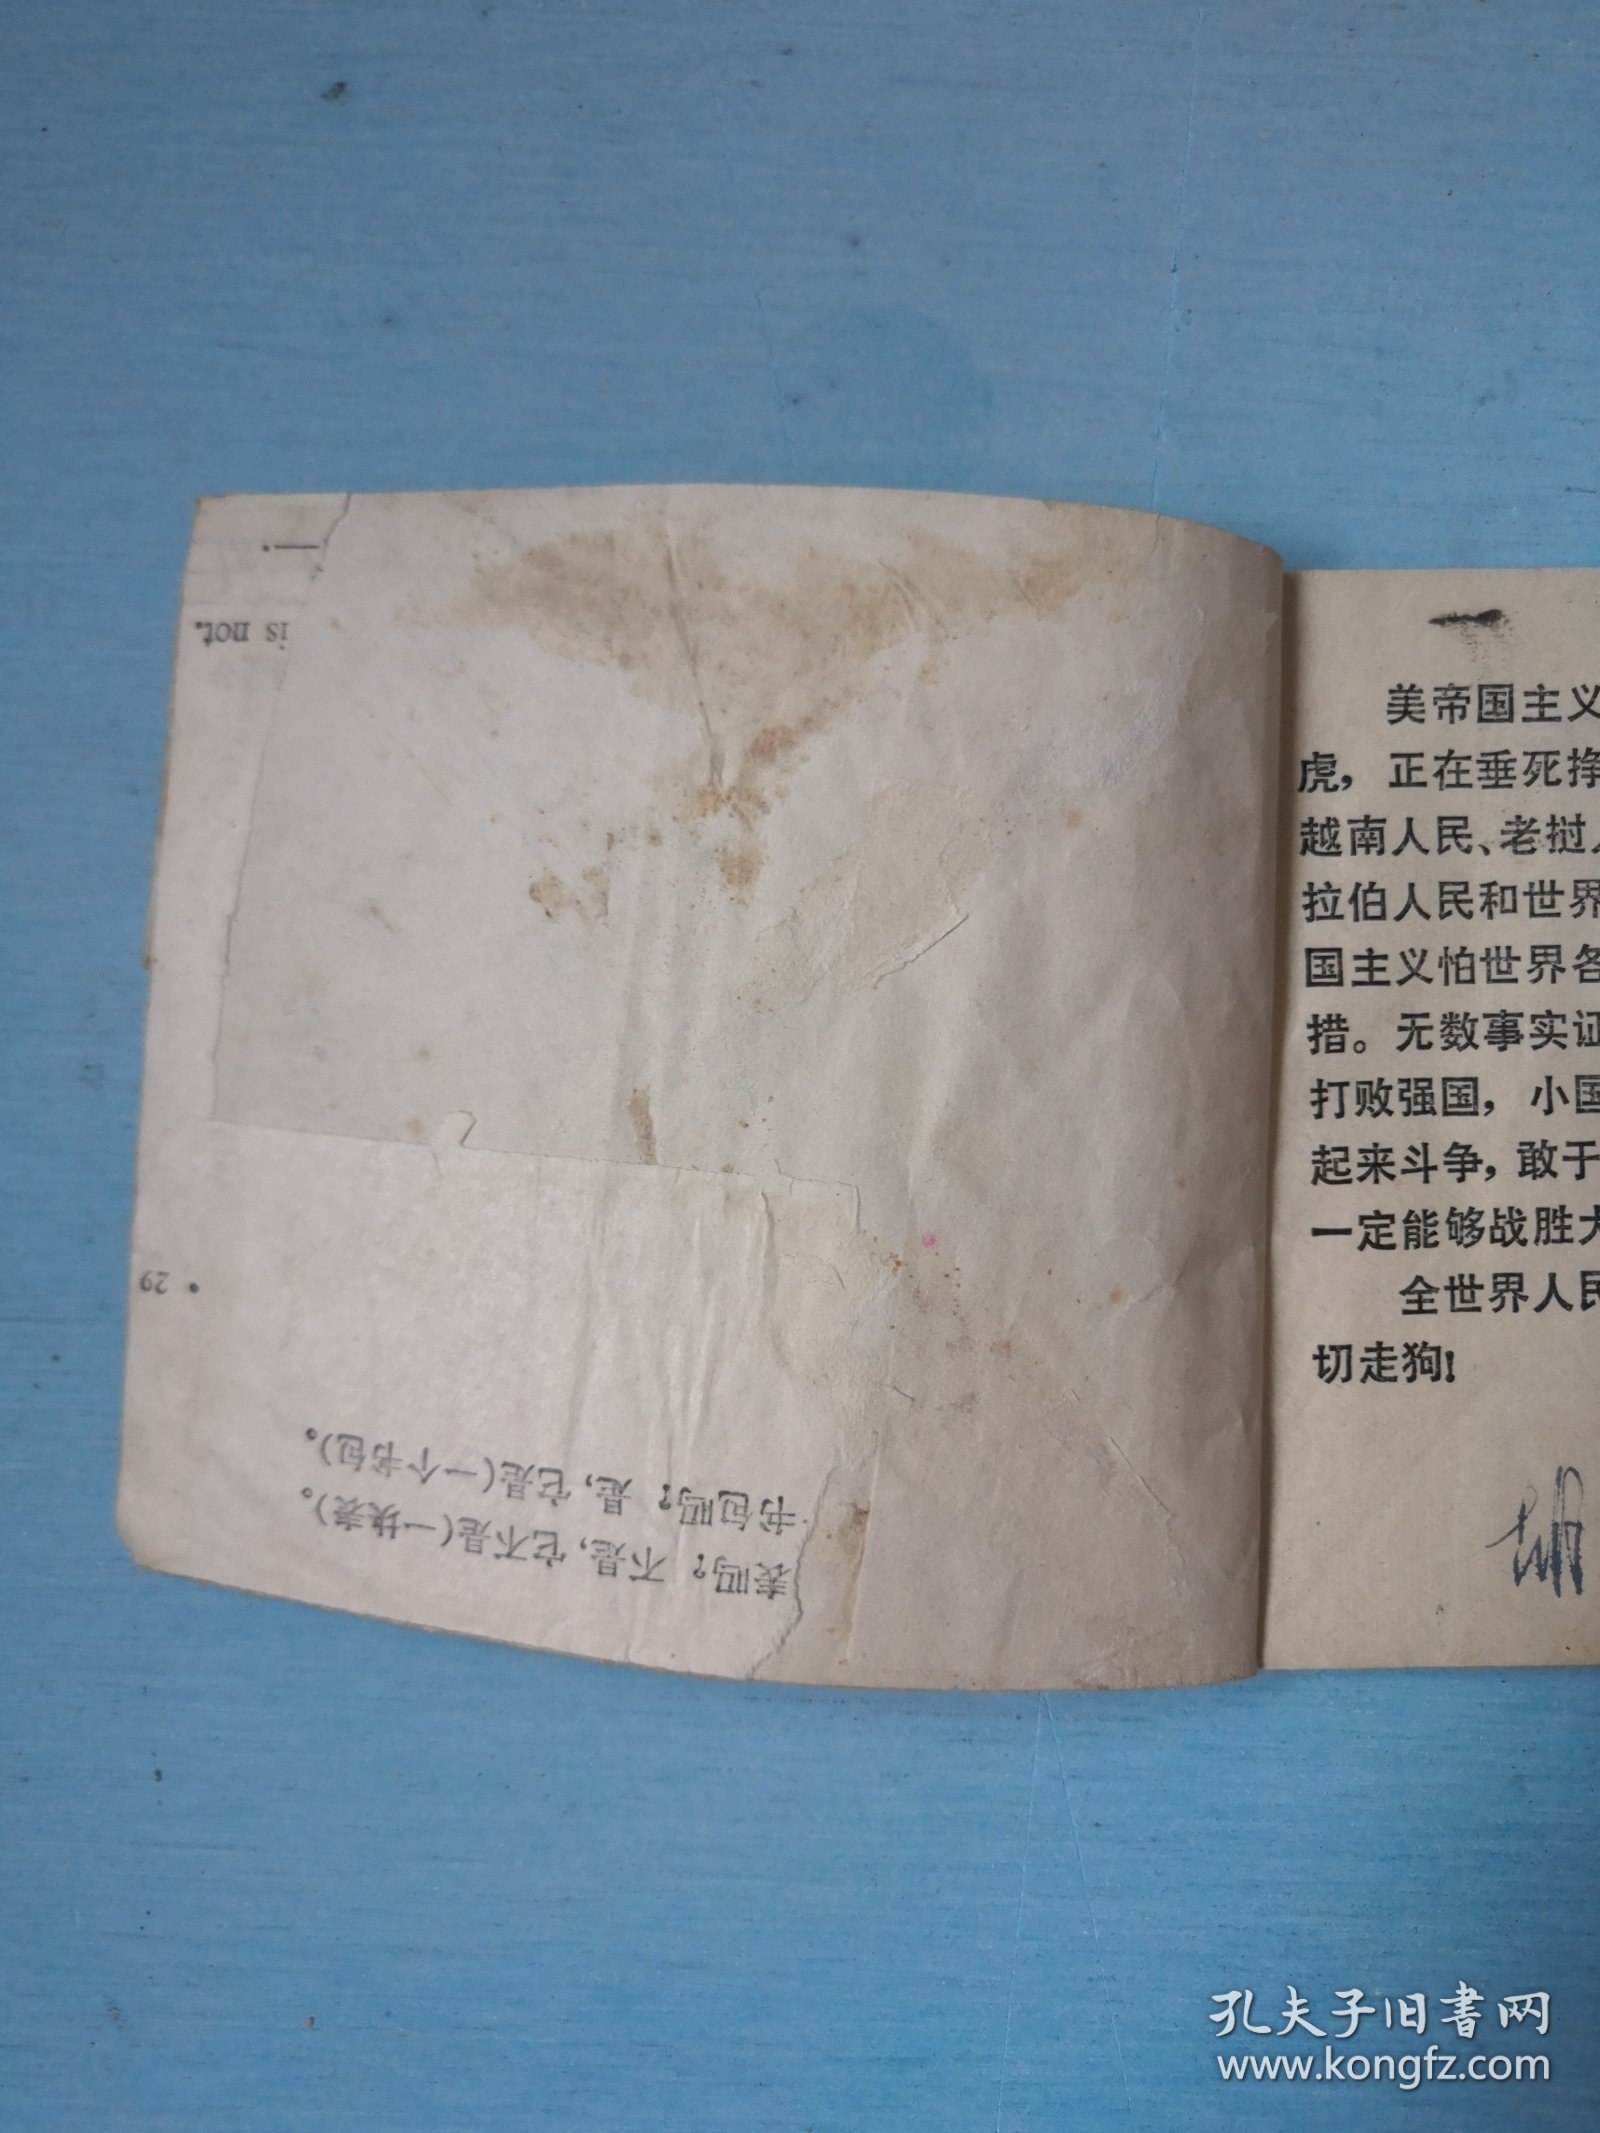 is not.
29
表吗? 不是,它不是(一块表)。
书包吗? 是,它是(一个书包)。
美帝国主义
虎，正在垂死挣
越南人民、老挝人
拉伯人民和世界
国主义怕世界各
措。无数事实证
打败强国，小国
起来斗争，敢于
一定能够战胜大
全世界人民
切走狗!
孔夫子旧书网
www.kongfz.com